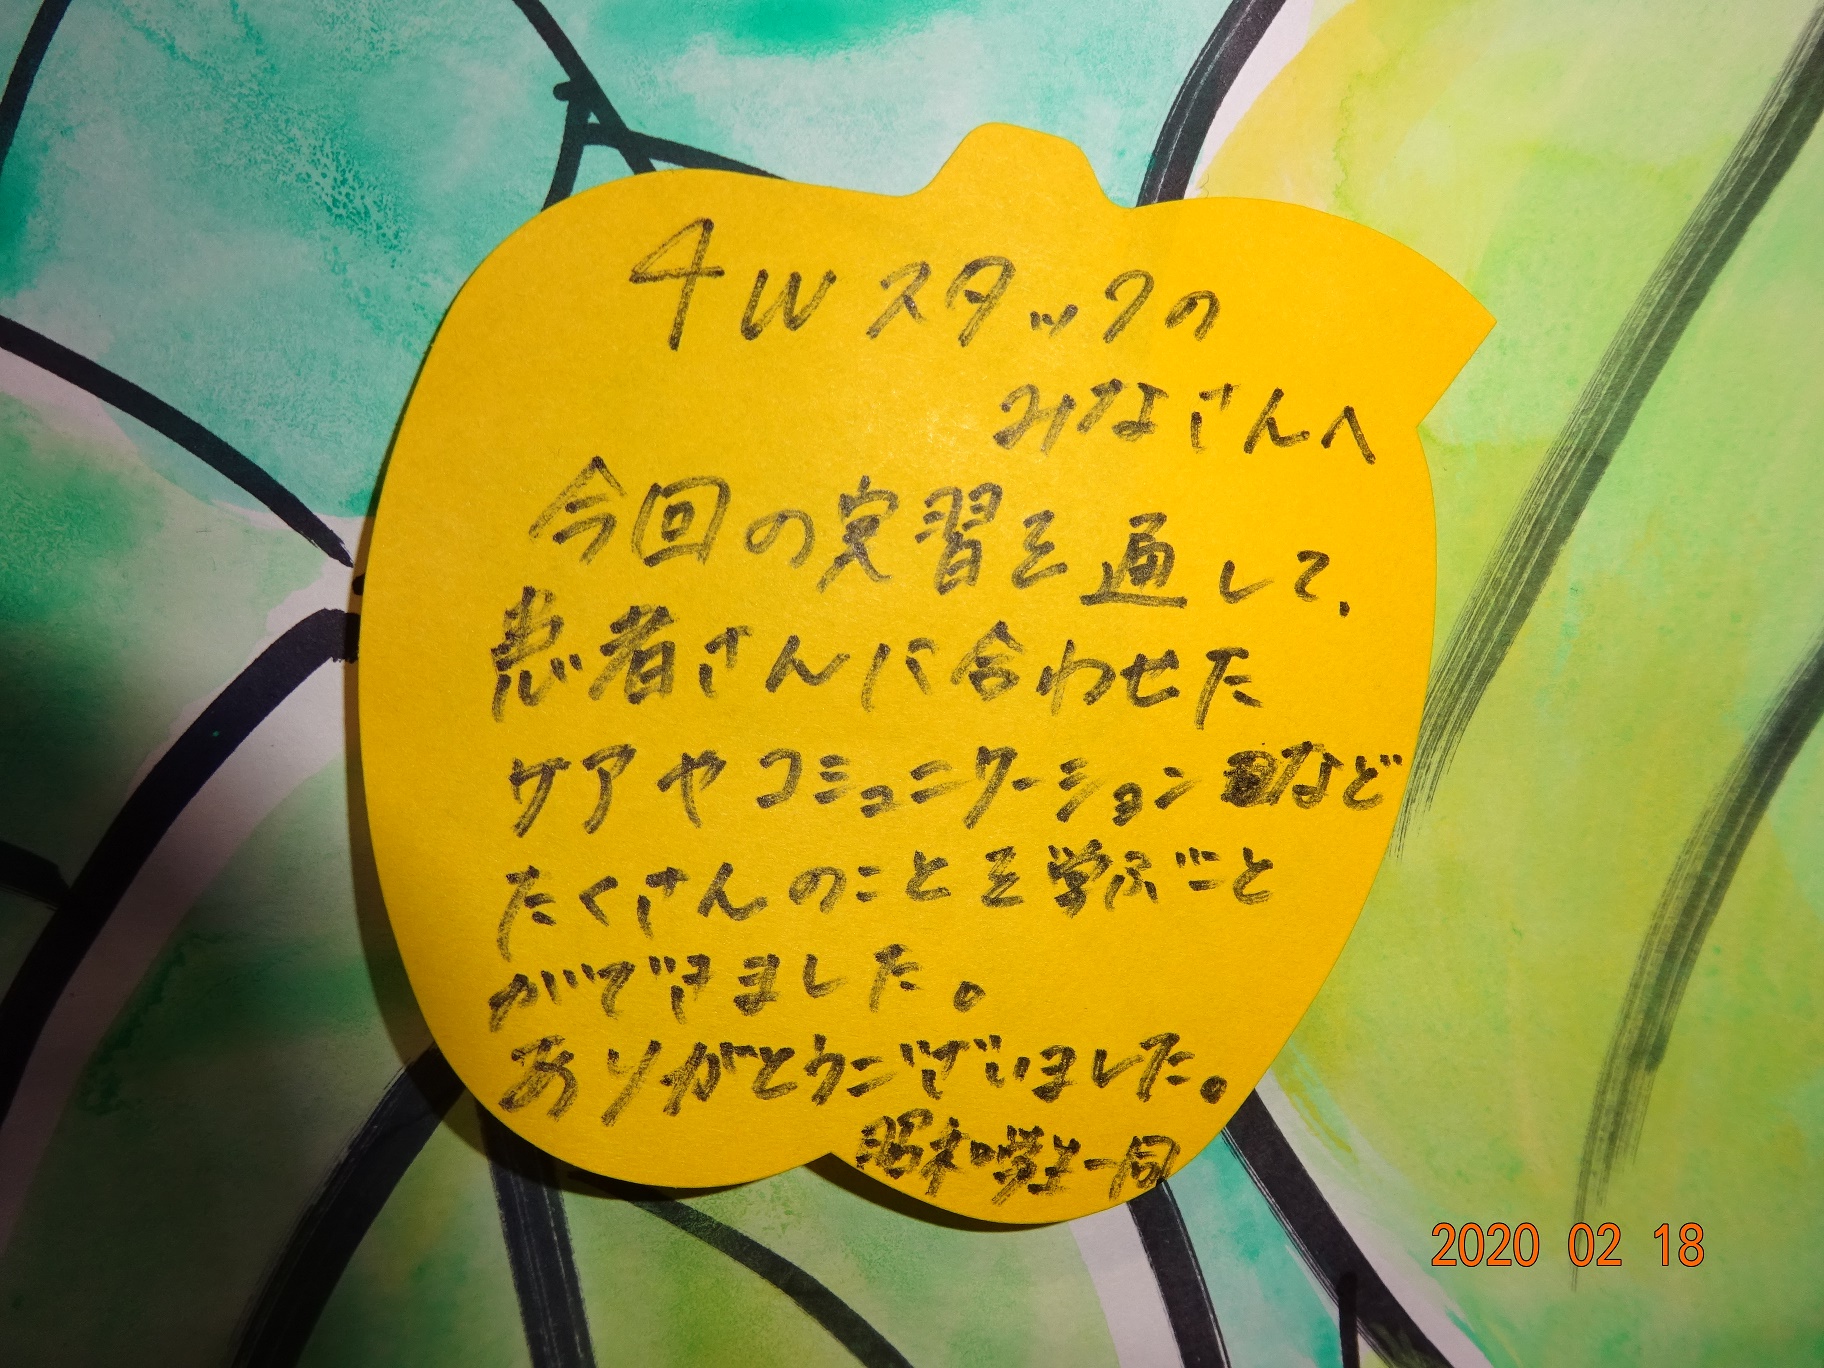 4Wスタックの
みなさんへ
今回の実習を通して、
患者さんに合わせた
ケアやコミュニケーションなど
たくさんのことを学ぶこと
ができました。
ありがとうございました。
昭和学生一同
2020 02 18